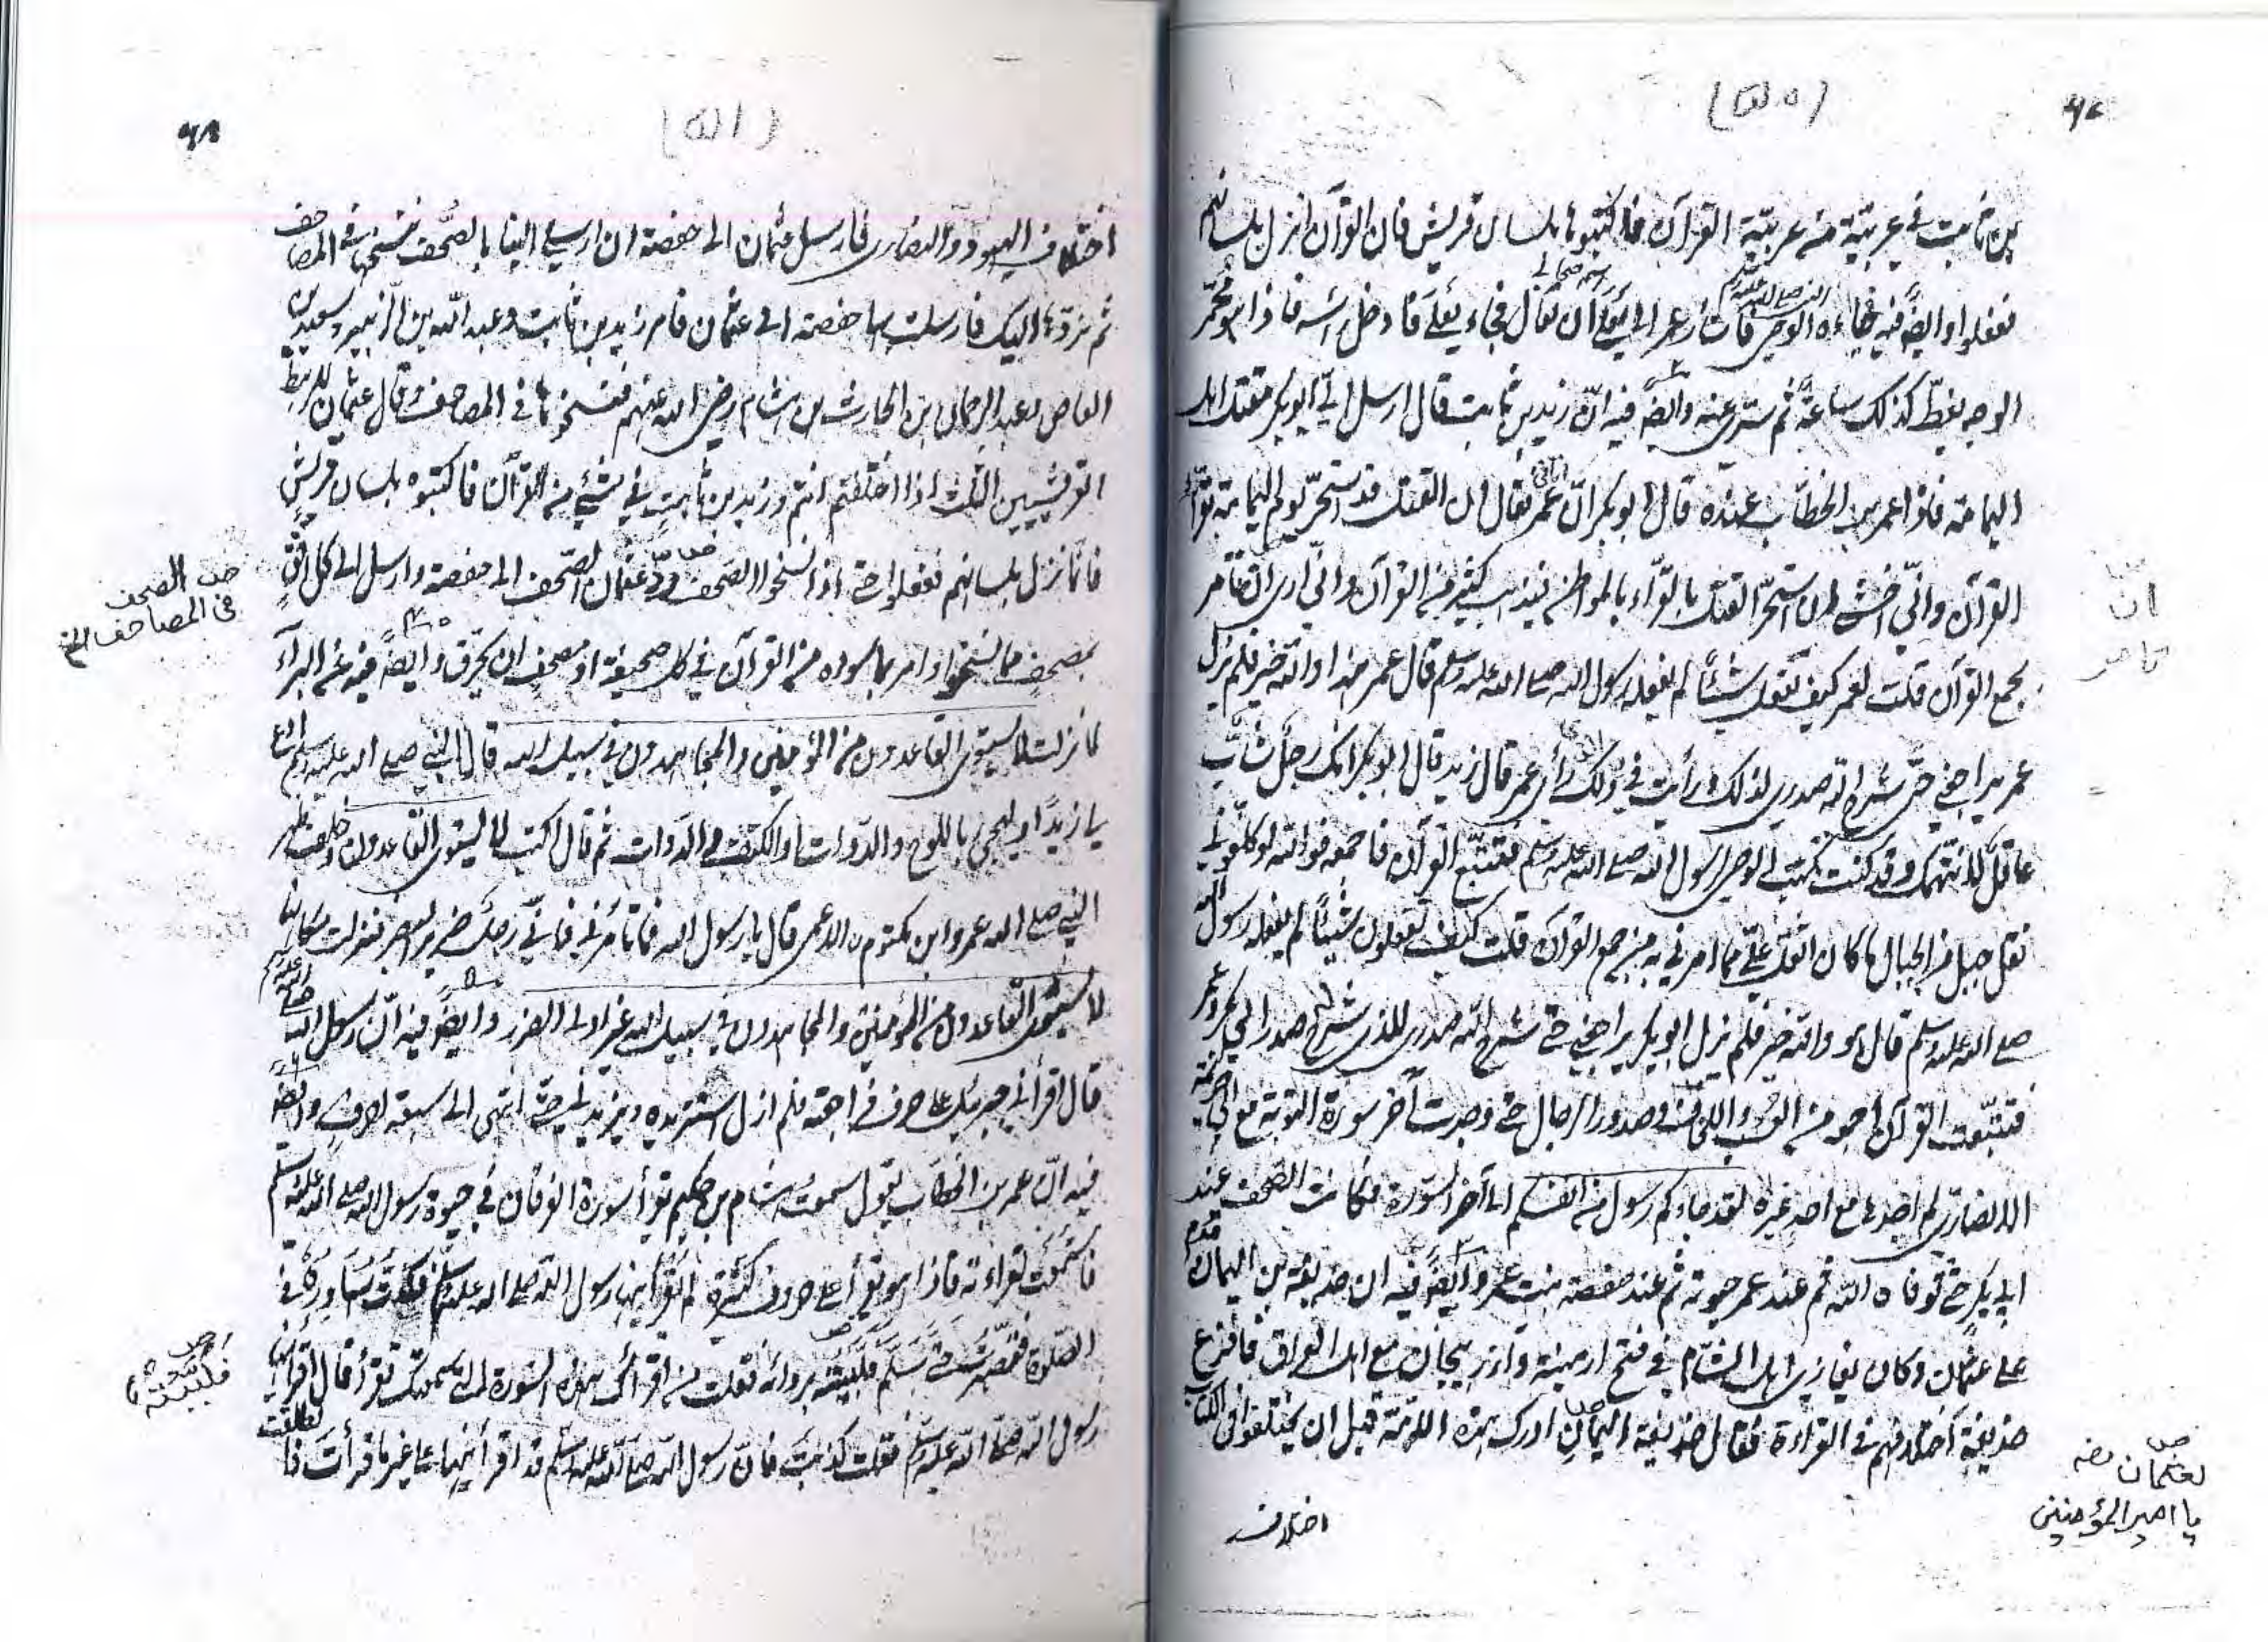 ۶۷
(۵۰)
بن ثابت في عربيّة من عربيّة القرآن فاكتبوها بلسان قريش فان القرآن انزل بلسانهم
ففعلوا وايضًا فيه فجاءه الوحي فاشار عمر الى يعلى ان تعال فجاء يعلى فادخل رأسه فاذا هو محمّر
النبي صلى الله عليه وسلم
الوجه يغطّ كذلك ساعةً ثم سرّي عنه وايضًا فيه انّ زيد بن ثابت قال ارسل اليّ ابو بكر مقتل اهل
اليمامة فاذا عمر بن الخطّاب عنده قال ابو بكر انّ عمر اتاني فقال ان القتل قد استحرّ يوم اليمامة بقرّاء
القرآن وانّي اخشى ان استحرّ القتل بالقرّاء بالمواطن فيذهب كثير من القرآن وانّي ارى ان تأمر
ان
تامر
بجمع القرآن قلت لعمر كيف تفعل شيئًا لم يفعله رسول الله صلى الله عليه وسلم قال عمر هذا والله خير فلم يزل
عمر يراجعني حتّى شرح الله صدري لذلك ورأيت في ذلك رأى عمر قال زيد قال ابو بكر انك رجل شابّ
عاقل لا نتهمك وقد كنت تكتب الوحي لرسول الله صلى الله عليه وسلم فتتبّع القرآن فاجمعه فوالله لو كلّفوني
نقل جبل من الجبال ما كان اثقل عليّ مما امرني به من جمع القرآن قلت كيف تفعلون شيئًا لم يفعله رسول الله
صلى الله عليه وسلم قال هو والله خير فلم يزل ابو بكر يراجعني حتى شرح الله صدري للذي شرح له صدر ابي بكر وعمر
فتتبّعت القرآن اجمعه من العسب واللخاف وصدور الرجال حتى وجدت آخر سورة التوبة مع ابي خزيمة
الانصاري لم اجدها مع احد غيره لقد جاءكم رسول من انفسكم الى آخر السورة فكانت الصحف عند
ابي بكر حتى توفاه الله ثم عند عمر حيوته ثم عند حفصة بنت عمر وايضًا فيه ان حذيفة بن اليمان قدم
على عثمان وكان يغازي اهل الشام في فتح ارمينية وآذربيجان مع اهل العراق فافزع
حذيفة اختلافهم في القراءة فقال حذيفة اليمان ادرك هذه الامّة قبل ان يختلفوا في الكتاب
لعثمان
يا امير المؤمنين
اختلاف
۶۸
(۵۱)
اختلاف اليهود والنصارى فارسل عثمان الى حفصة ان ارسلي الينا بالصّحف ننسخها في المصاحف
ثم نردّها اليك فارسلت بها حفصة الى عثمان فامر زيد بن ثابت وعبد الله بن الزبير وسعيد بن
العاص وعبد الرحمان ابن الحارث بن هشام رضى الله عنهم فنسخوها في المصاحف وقال عثمان للرهط
القرشيين الثلث اذا اختلفتم انتم وزيد بن ثابت في شيء من القرآن فاكتبوه بلسان قريش
فانّما نزل بلسانهم ففعلوا حتى اذا نسخوا الصحف ردّ عثمان الصّحف الى حفصة وارسل الى كل افق
الصحف
فى المصاحف الخ
بمصحف مما نسخوا وامر بما سواه من القرآن في كل صحيفة او مصحف ان يحرق وايضًا فيه عن البرآء
لما نزلت لا يستوى القاعدون من المؤمنين والمجاهدون في سبيل الله قال النبي صلى الله عليه وسلم ادع
لي زيدًا وليجيء باللوح والدوات والكتف او الكتف والدوات ثم قال اكتب لا يستوى القاعدون وخلف ظهر
النبي صلى الله عمرو ابن مكتوم الاعمى قال يا رسول الله فما تأمرني فانّي رجل ضرير البصر فنزلت مكانها
لا يستوى القاعدون من المؤمنين والمجاهدون في سبيل الله غير اولى الضرر وايضًا فيه انّ رسول الله صلى الله عليه وسلم
قال اقرأني جبريل على حرف فراجعته فلم ازل استزيده ويزيدني حتى انتهى الى سبعة احرف وايضًا
فيه انّ عمر بن الخطاب يقول سمعت هشام بن حكيم يقرأ سورة الفرقان في حيوة رسول الله صلى الله عليه وسلم
فاستمعت لقراءته فاذا هو يقرأ على حروف كثيرة لم يقرأنيها رسول الله صلى الله عليه وسلم فكدت اساوره في
الصّلوة فتصبّرت حتى سلّم فلبّبته بردائه فقلت من اقرأك هذه السّورة التي سمعتك تقرأ قال اقرأنيها
فلبيته
رسول الله صلى الله عليه وسلم فقلت كذبت فان رسول الله صلى الله عليه وسلم قد اقرأنيها على غير ما قرأت فانطلقت